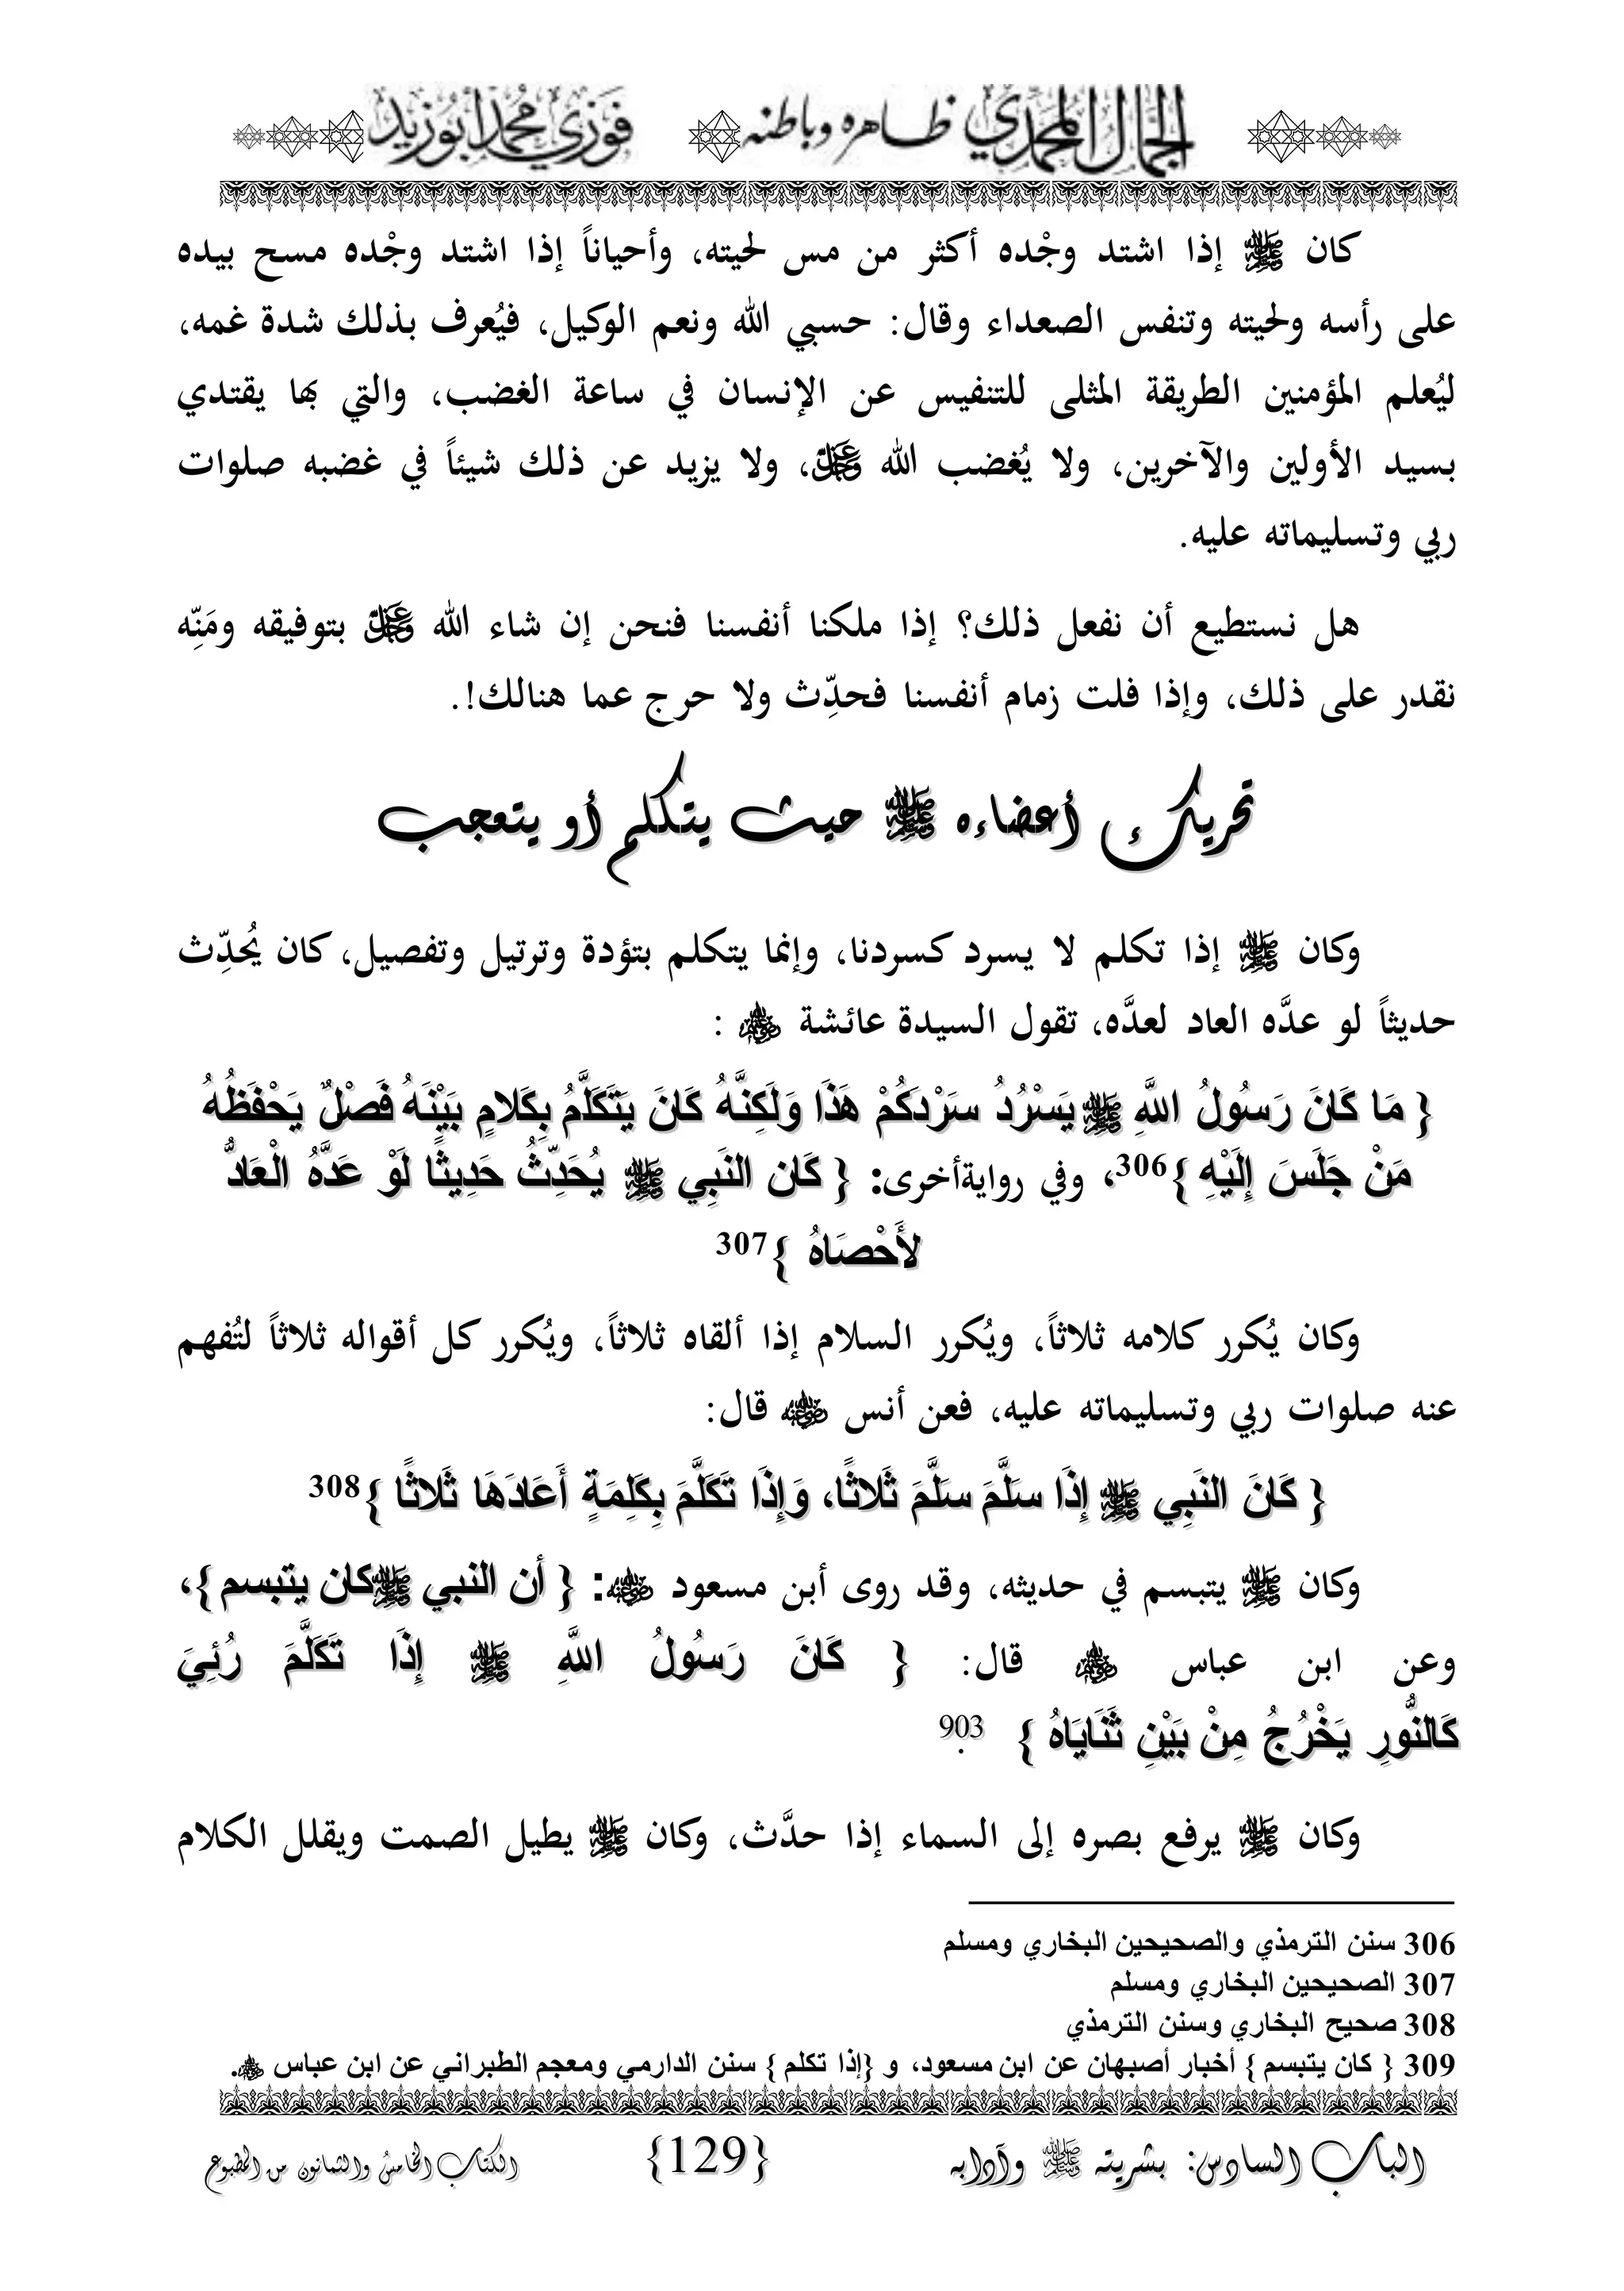 الجمال المحمدي ظاهره وباطنه فوزي محمد أبوزيد
كان ﷺ إذا اشتد وجْده أكثر من مس لحيته، وأحياناً إذا اشتد وجْده مسح بيده
على رأسه ولحيته وتنفس الصعداء وقال: حسبي الله ونعم الوكيل، فيُعرف بذلك شدة غمه،
ليُعلم المؤمنين الطريقة المثلى للتنفيس عن الإنسان في ساعة الغضب، والتي بها يقتدي
بسيد الأولين والآخرين، ولا يُغضب الله عز وجل، ولا يزيد عن ذلك شيئاً في غضبه صلوات
ربي وتسليماته عليه.
هل نستطيع أن نفعل ذلك؟ إذا ملكنا أنفسنا فنحن إن شاء الله عز وجل بتوفيقه ومَنِّه
نقدر على ذلك، وإذا فلت زمام أنفسنا فحدِّث ولا حرج عما هنالك!.
تحريك أعضاءه ﷺ حيث يتكلم أو يتعجب
وكان ﷺ إذا تكلم لا يسرد كسردنا، وإنما يتكلم بتؤدة وترتيل وتفصيل، كان يُحدِّث
حديثاً لو عدَّه العاد لعدَّه، تقول السيدة عائشة رضي الله عنها :
{ مَا كَانَ رَسُولُ اللَّهِ ﷺ يَسْرُدُ سَرْدَكُمْ هَذَا وَلَكِنَّهُ كَانَ يَتَكَلَّمُ بِكَلامٍ بَيْنَهُ فَصْلٌ يَحْفَظُهُ
مَنْ جَلَسَ إِلَيْهِ }306، وفي روايةأخرى: { كَان النَبِي ﷺ يُحَدِّثُ حَدِيثًا لَوْ عَدَّهُ الْعَادُّ
لأَحْصَاهُ }307
وكان يُكرر كلامه ثلاثاً، ويُكرر السلام إذا ألقاه ثلاثاً، ويُكرر كل أقواله ثلاثاً لتُفهم
عنه صلوات ربي وتسليماته عليه، فعن أنس رضي الله عنه قال:
{ كَانَ النَبِي ﷺ إِذَا سَلَّمَ سَلَّمَ ثَلاثًا، وَإِذَا تَكَلَّمَ بِكَلِمَةٍ أَعَادَهَا ثَلاثًا }308
وكان ﷺ يتبسم في حديثه، وقد روى أبن مسعود رضي الله عنه: { أن النبي ﷺكان يتبسم}،
وعن ابن عباس رضي الله عنهما قال: { كَانَ رَسُولُ اللَّهِ ﷺ إِذَا تَكَلَّمَ رُئِيَ
كَالنُّورِ يَخْرُجُ مِنْ بَيْنِ ثَنَايَاهُ } 903.
وكان ﷺ يرفع بصره إلى السماء إذا حدَّث، وكان ﷺ يطيل الصمت ويقلل الكلام
306 سنن الترمذي والصحيحين البخاري ومسلم
307 الصحيحين البخاري ومسلم
308 صحيح البخاري وسنن الترمذي
309 { كان يتبسم } أخبار أصبهان عن ابن مسعود، و {إذا تكلم } سنن الدارمي ومعجم الطبراني عن ابن عباس رضي الله عنهما.
الباب السادس: بشريته ﷺ وآدابه {129} الكتاب الخامس والثمانون من المطبوع